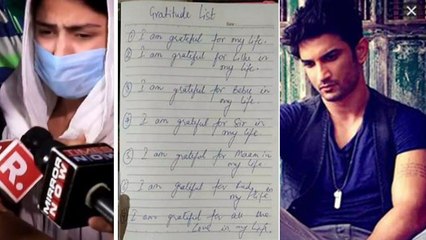 Gratitude List
Date:
① I am grateful for my life.
② I am grateful for Lillu in
my life.
③ I am grateful for Bebu in
my life.
④ I am grateful for Sir in
my life
⑤ I am grateful for Ma'am in
my life
I am grateful for Fudge in
my life
I am grateful for all the
love in my life.
R.
MIRROR
NOW